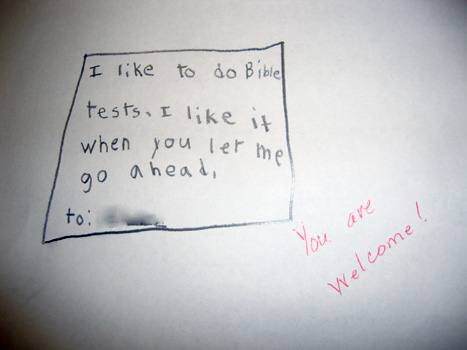 I like to do Bible
tests. I like it
when you let me
go ahead.
to:
You are
Welcome!